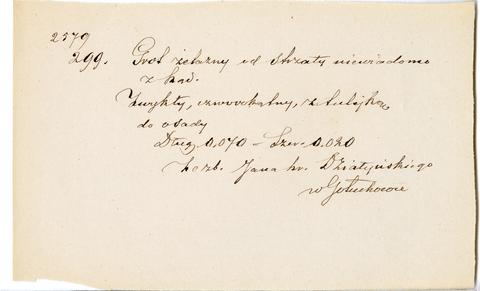 2579
299. Grot żelazny od strzały niewiadomo
z kąd.
Zwykły, czworokątny, z tulejką
do osady
Dług. 0.070 – Szer. 0.020
Ze zb. Jana hr. Działyńskiego
w Gołuchowie